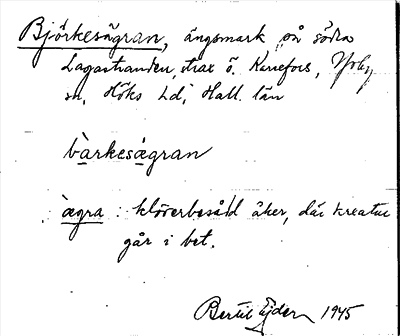 Björkesägran, ängsmark på södra
Lagastranden, strax ö. Karsefors, Ysby
sn, Höks hd, Hall. län
bàrkesægran
ægra : klöverbesådd åker, där kreatur
går i bet.
Bertil Ejder 1945